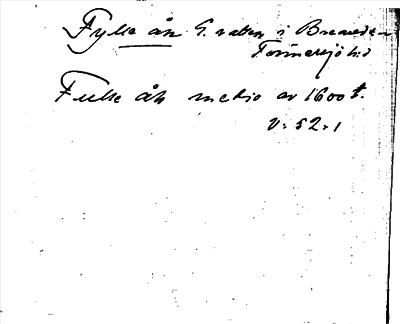 Fylle ån G. vatten i Breared
Tönnersjö hd
Fulle åh medio av 1600 t.
V. 52. 1